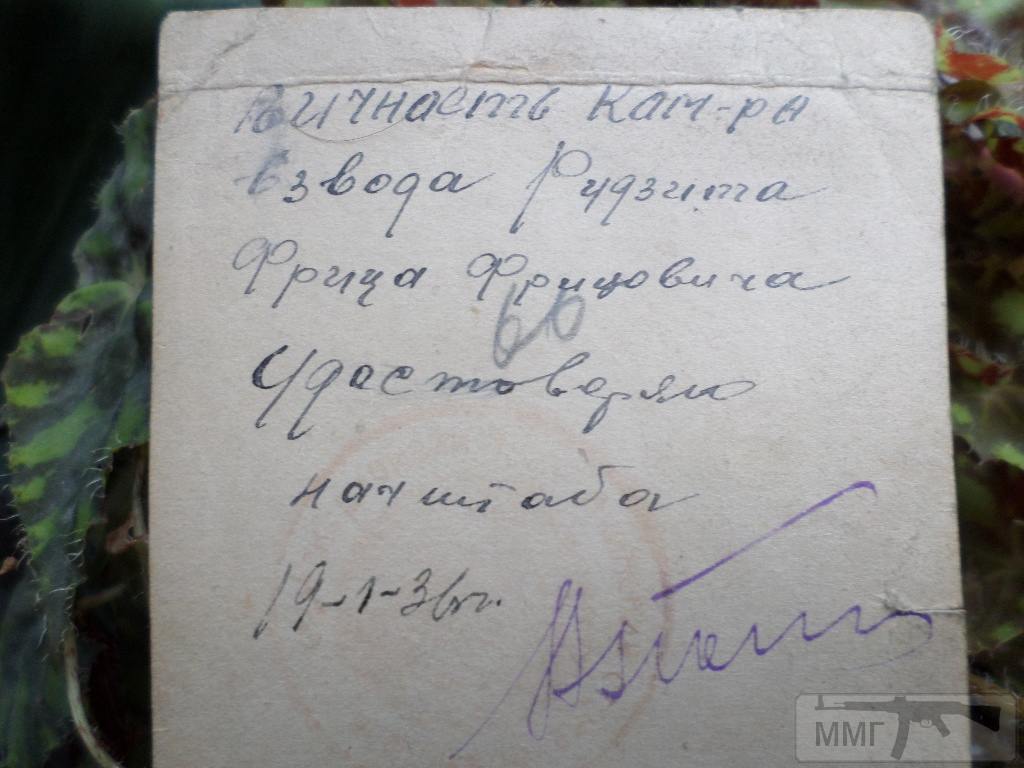 Личнасть Кам-ра
взвода Рудзита
Фрица Фрицовича
60
Удастоверяю
начштаба
19-1-36г.
ММГ